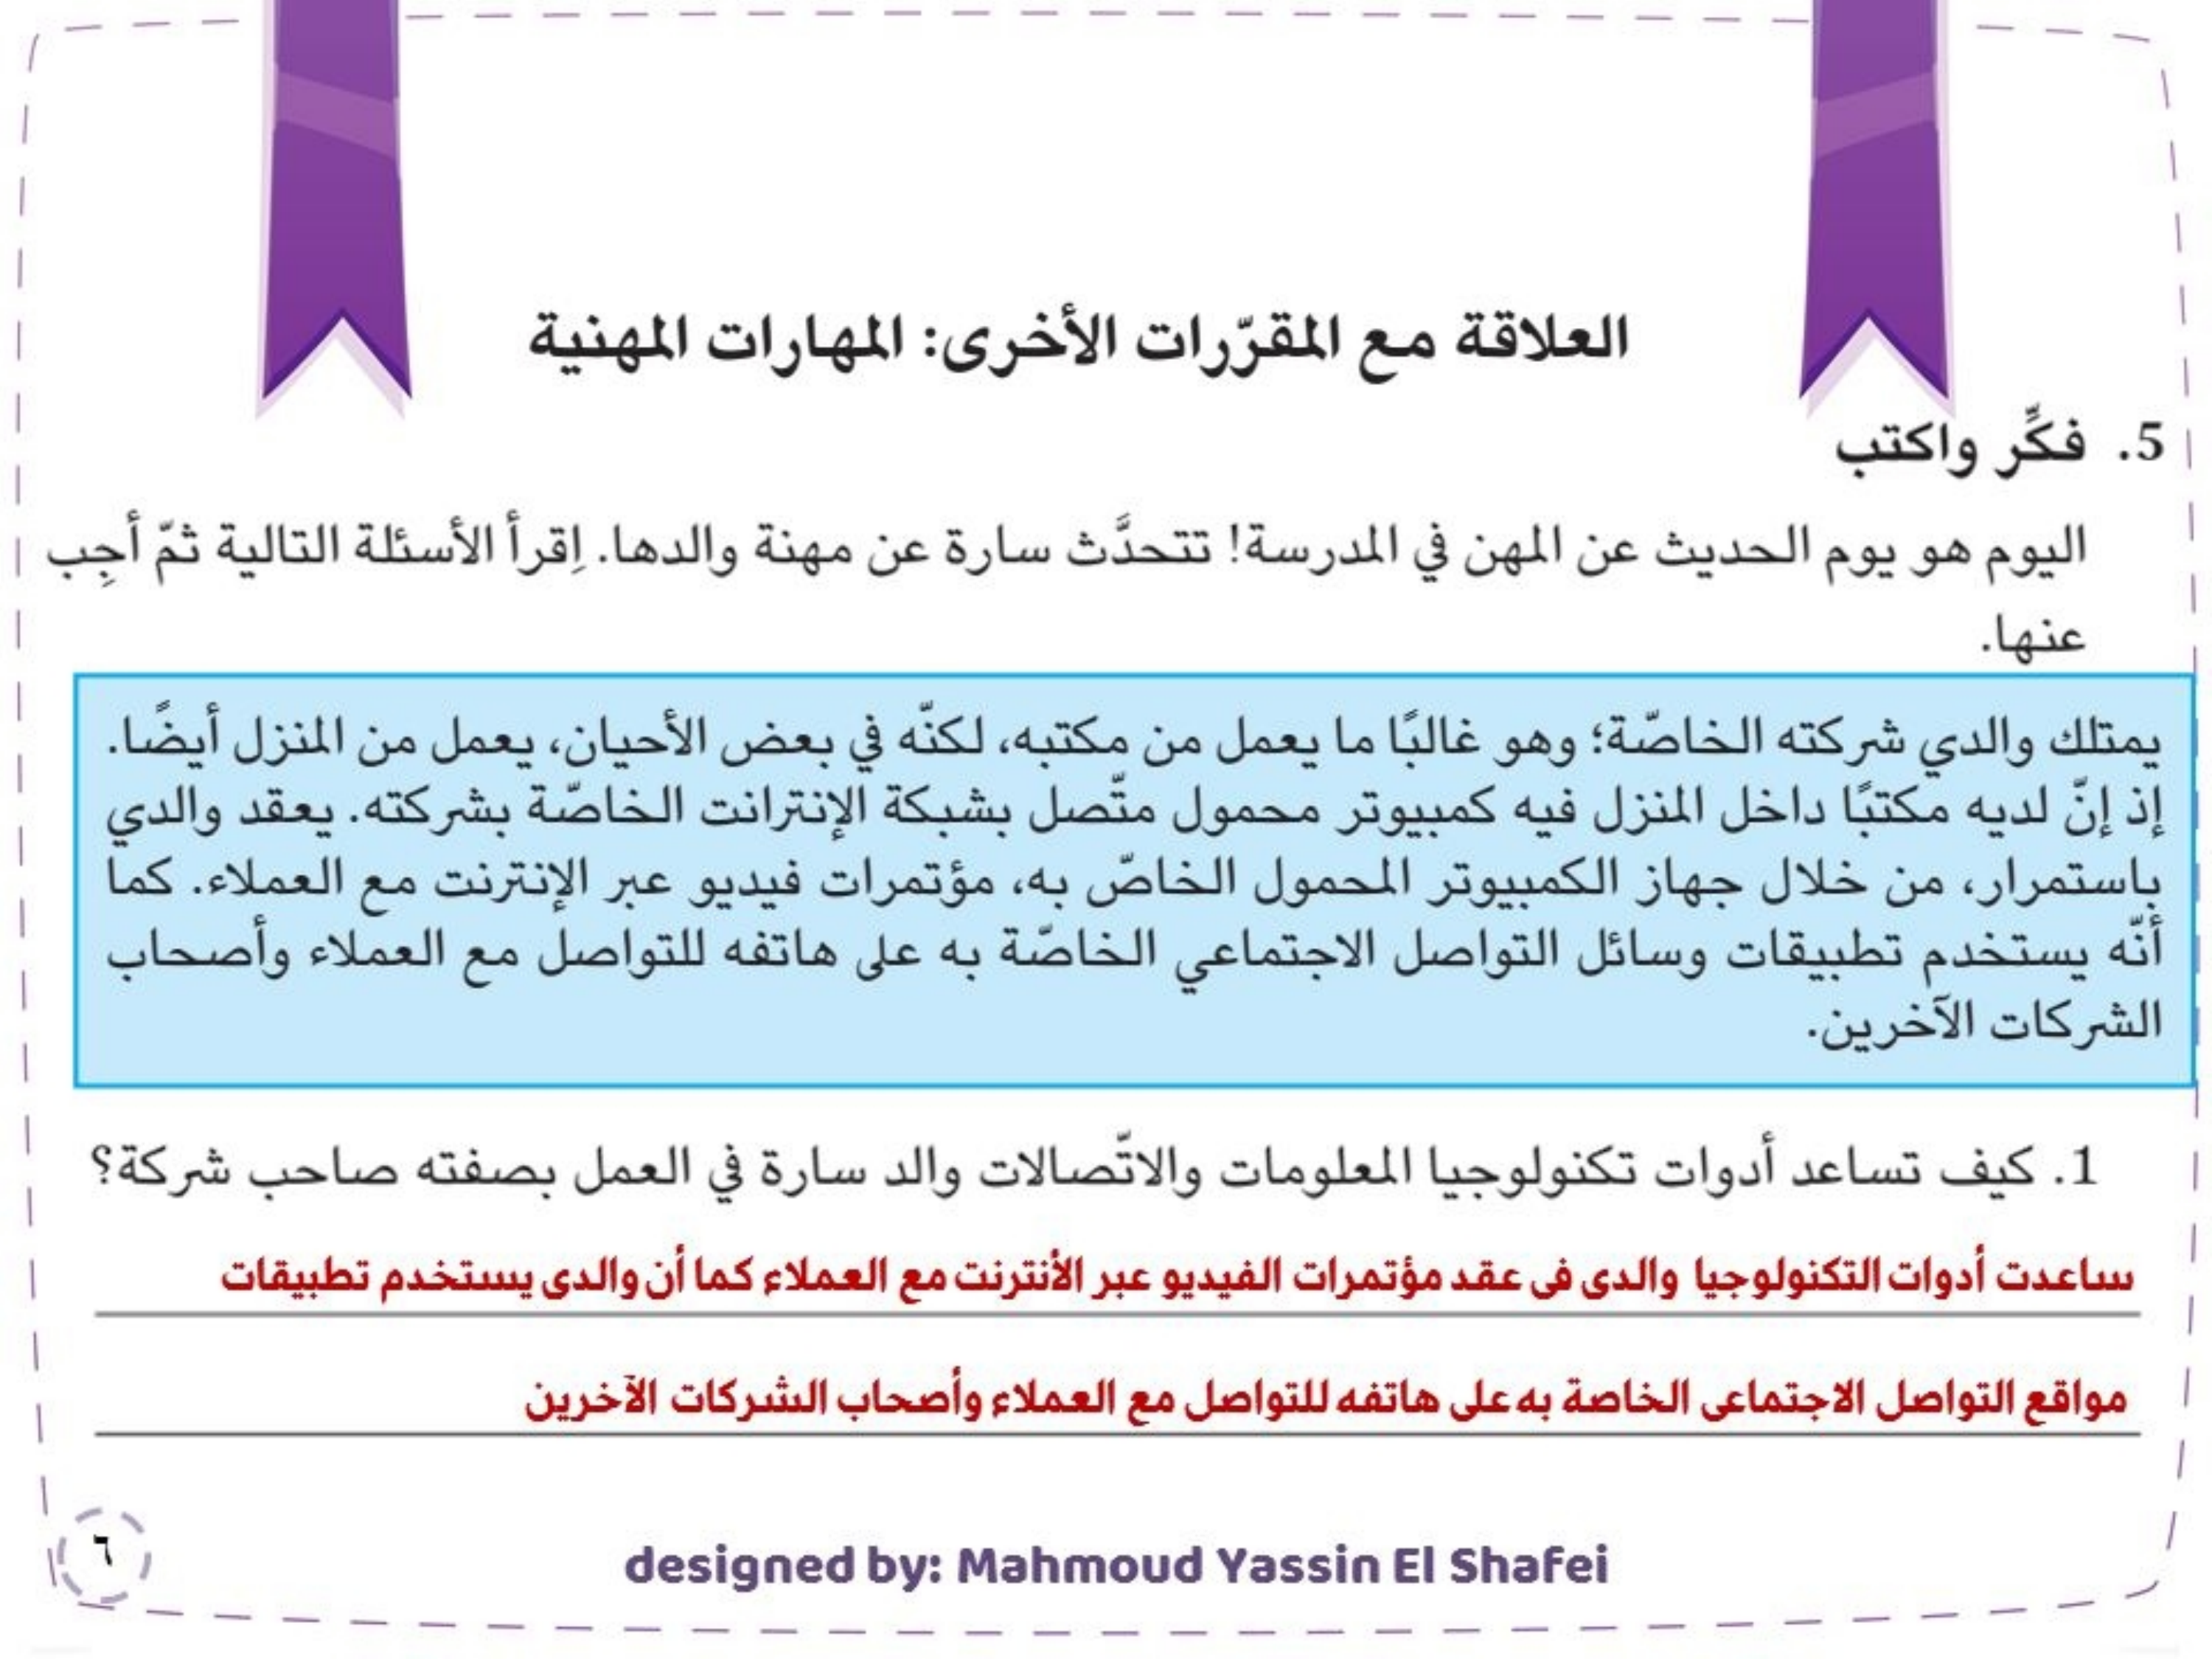 العلاقة مع المقرّرات الأخرى: المهارات المهنية
5. فكِّر واكتب
اليوم هو يوم الحديث عن المهن في المدرسة! تتحدَّث سارة عن مهنة والدها. اِقرأ الأسئلة التالية ثمّ أجِب
عنها.
يمتلك والدي شركته الخاصّة؛ وهو غالبًا ما يعمل من مكتبه، لكنّه في بعض الأحيان، يعمل من المنزل أيضًا.
إذ إنّ لديه مكتبًا داخل المنزل فيه كمبيوتر محمول متّصل بشبكة الإنترانت الخاصّة بشركته. يعقد والدي
باستمرار، من خلال جهاز الكمبيوتر المحمول الخاصّ به، مؤتمرات فيديو عبر الإنترنت مع العملاء. كما
أنّه يستخدم تطبيقات وسائل التواصل الاجتماعي الخاصّة به على هاتفه للتواصل مع العملاء وأصحاب
الشركات الآخرين.
1. كيف تساعد أدوات تكنولوجيا المعلومات والاتّصالات والد سارة في العمل بصفته صاحب شركة؟
ساعدت أدوات التكنولوجيا والدى فى عقد مؤتمرات الفيديو عبر الأنترنت مع العملاء كما أن والدى يستخدم تطبيقات
مواقع التواصل الاجتماعى الخاصة به على هاتفه للتواصل مع العملاء وأصحاب الشركات الآخرين
designed by: Mahmoud Yassin El Shafei
٦